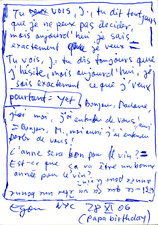 Tu vois, j', tu dit toujours
que je ne peux pas decider,
mais aujourd'hui, je sais
exactement que je veux
Tu vois, j', tu dis toujours que
j'hésite, mais aujourd'hui, je
sais exactement ce que j'veux
pourtant = yet Bonjour, Madame
moi, j'ai entendu de vous
Bonjour, M, moi aussi j'ai entendu
parler de vous!
L'année sera bonne pour le vin?
Est-ce que ça va être un bonne
année pour le vin?
Egon NYC 28 XI 06
(Papa birthday)